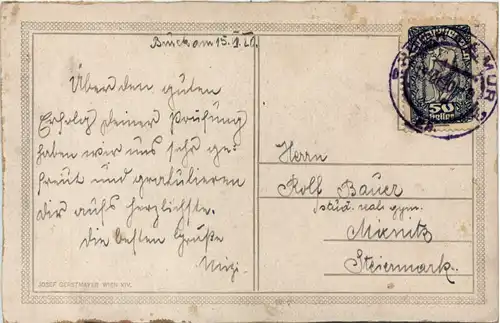 Bruck am 15. I. 20.
Über den guten
Erfolg deiner Prüfung
haben wir uns sehr ge-
freut und gratulieren
dir aufs herzlichste.
Die besten Grüße
Mizi.
Herrn
Rolf Bauer
stud. real. gym.
Mixnitz
Steiermark.
50
Heller
MUR
JOSEF GERSTMAYER WIEN XIV.